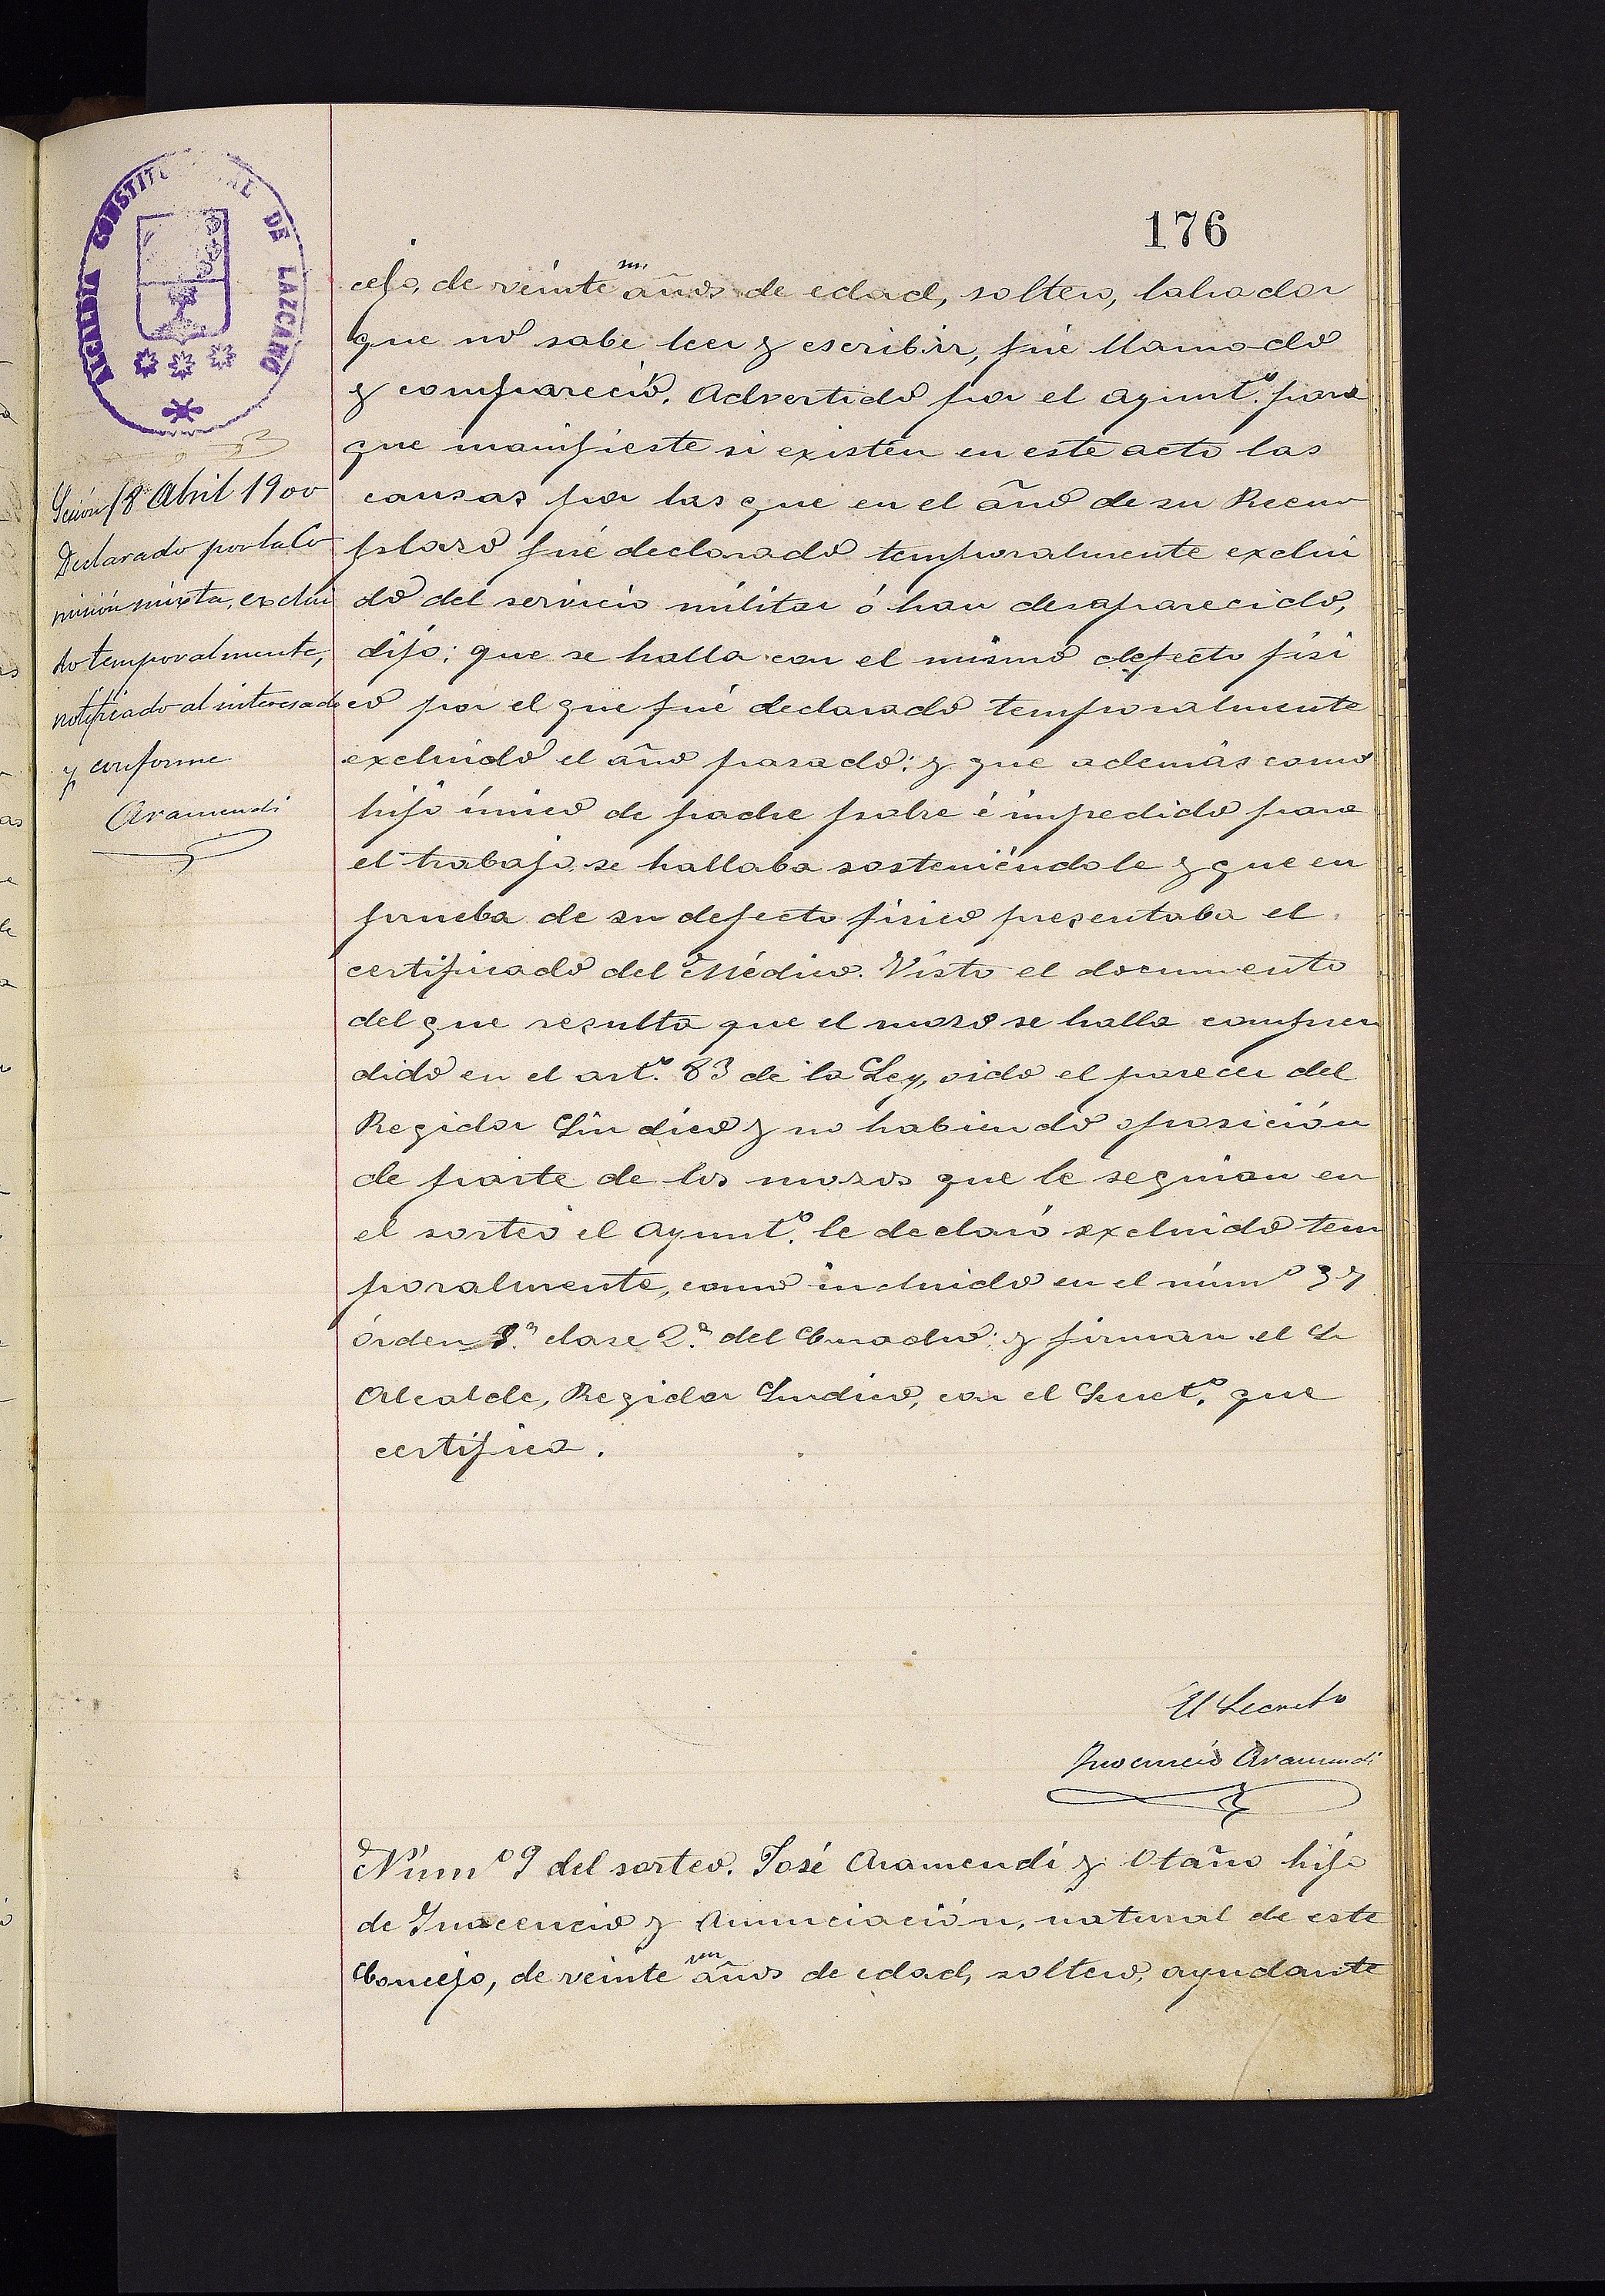 176
ALCALDIA CONSTITUCIONAL DE LAZCANO
Sesión 18 Abril 1900
Declarado por la Co
misión mixta, exclui
do temporalmente,
notificado al interesado
y conforme
Aramendi
cejo, de veinte un años de edad, soltero, labrador
que no sabe leer y escribir, fué llamado
y compareció. Advertido por el Ayunt.º para
que manifieste si existen en este acto las
causas por las que en el año de su Reem
plazo fué declarado temporalmente exclui
do del servicio militar ó han desaparecido,
dijo; que se halla con el mismo defecto físi
co por el que fué declarado temporalmente
excluido el año pasado; y que además como
hijo único de padre pobre é impedido para
el trabajo, se hallaba sosteniéndole y que en
prueba de su defecto físico presentaba el
certificado del Médico. Visto el documento
del que resulta que el mozo se halla compren
dido en el art.º 83 de la Ley, oido el parecer del
Regidor Síndico y no habiendo oposición
de parte de los mozos que le seguian en
el sorteo el Ayunt.º le declaró excluido tem
poralmente, como incluido en el núm.º
órden 3.º clase 2.ª del Cuadro; y firman el Sr
Alcalde, Regidor Síndico, con el Secret.º que
certifica.
El Secreto
Inocencio Aramendi
Núm.º 9 del sorteo. José Aramendi y Otaño hijo
de Inocencio y Anunciación, natural de este
Concejo, de veinte un años de edad, soltero, ayudante